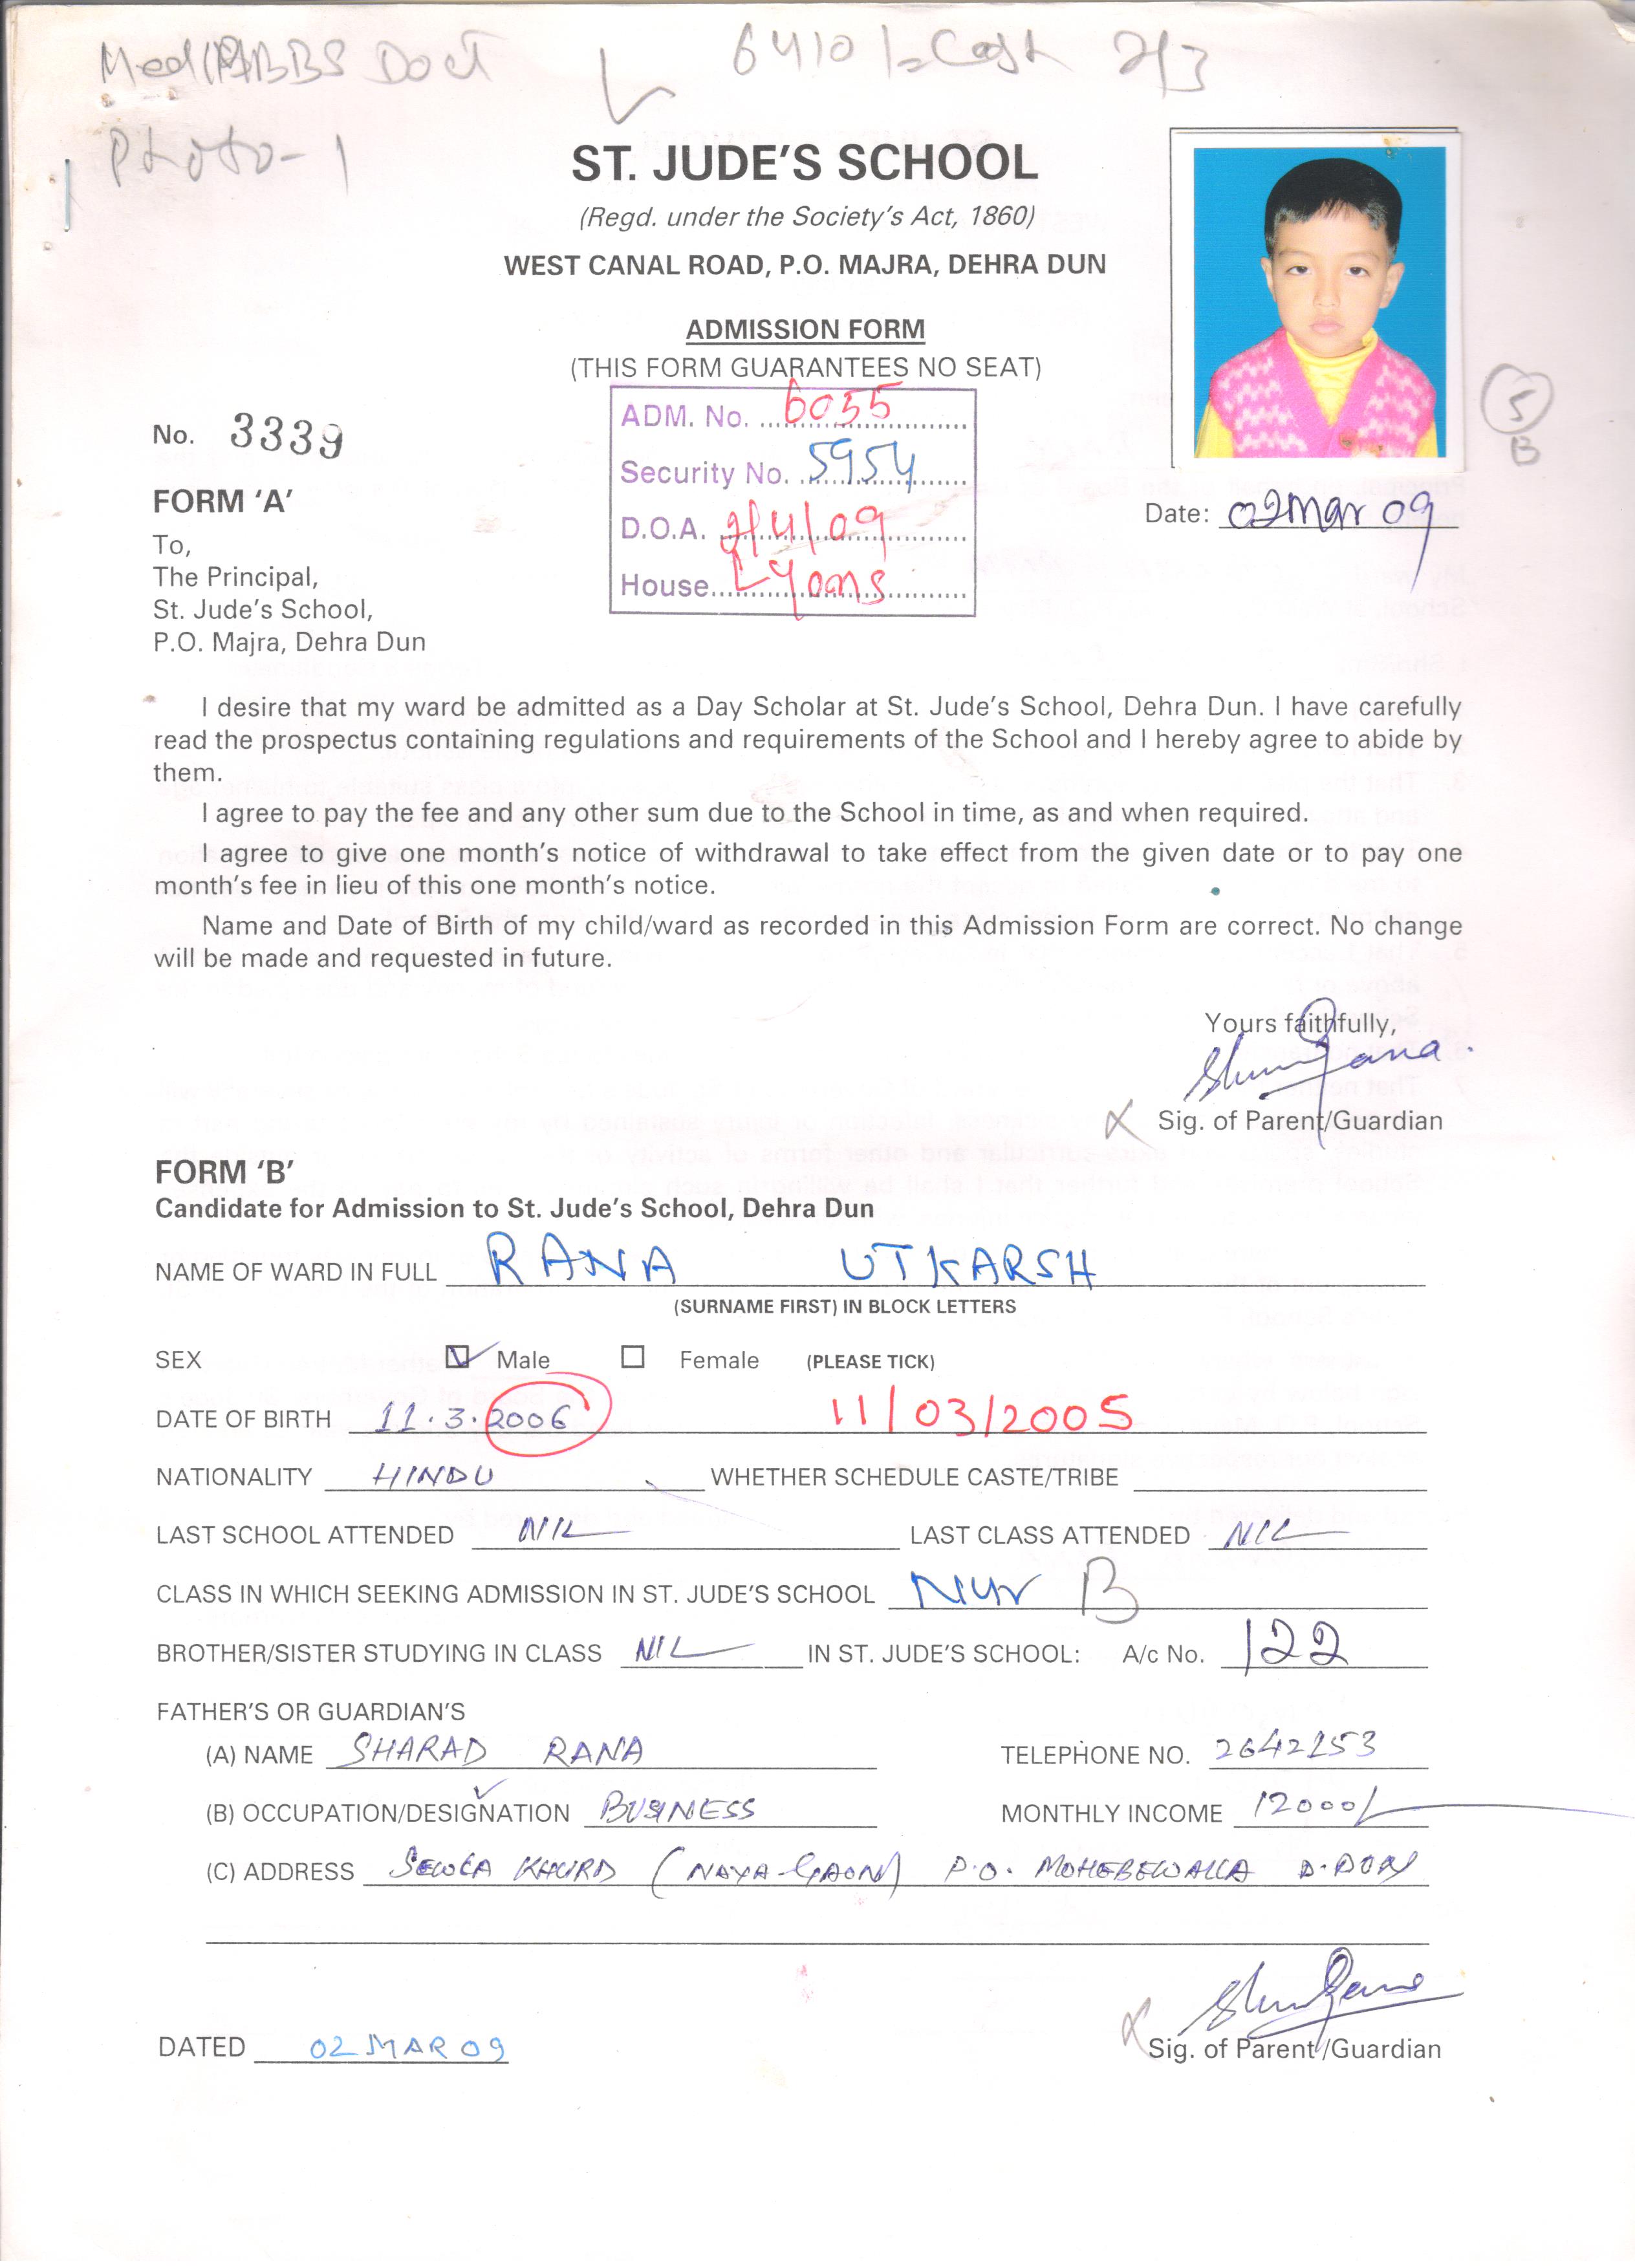 6410/= Cash 2/3
Photo-1
ST. JUDE'S SCHOOL
(Regd. under the Society's Act, 1860)
WEST CANAL ROAD, P.O. MAJRA, DEHRA DUN
ADMISSION FORM
(THIS FORM GUARANTEES NO SEAT)
ADM. No. 6055
5
B
No. 3339
Security No. 5954
FORM 'A'
Date: 02 Mar 09
D.O.A. 2/4/09
To,
The Principal,
House Lyons
St. Jude's School,
P.O. Majra, Dehra Dun
I desire that my ward be admitted as a Day Scholar at St. Jude's School, Dehra Dun. I have carefully
read the prospectus containing regulations and requirements of the School and I hereby agree to abide by
them.
I agree to pay the fee and any other sum due to the School in time, as and when required.
I agree to give one month's notice of withdrawal to take effect from the given date or to pay one
month's fee in lieu of this one month's notice.
Name and Date of Birth of my child/ward as recorded in this Admission Form are correct. No change
will be made and requested in future.
Yours faithfully,
Sig. of Parent/Guardian
FORM 'B'
Candidate for Admission to St. Jude's School, Dehra Dun
NAME OF WARD IN FULL RANA UTKARSH
(SURNAME FIRST) IN BLOCK LETTERS
SEX Male Female (PLEASE TICK)
DATE OF BIRTH 11.3.2006 11/03/2005
NATIONALITY HINDU WHETHER SCHEDULE CASTE/TRIBE
LAST SCHOOL ATTENDED NIL LAST CLASS ATTENDED NIL
CLASS IN WHICH SEEKING ADMISSION IN ST. JUDE'S SCHOOL Nur B
BROTHER/SISTER STUDYING IN CLASS NIL IN ST. JUDE'S SCHOOL: A/c No. 122
FATHER'S OR GUARDIAN'S
(A) NAME SHARAD RANA TELEPHONE NO. 2642153
(B) OCCUPATION/DESIGNATION BUSINESS MONTHLY INCOME 12000/
(C) ADDRESS SEWLA KHURD (NAYA-GAON) P.O. MOHEBEWALLA D.DON
DATED 02 MAR 09
Sig. of Parent/Guardian